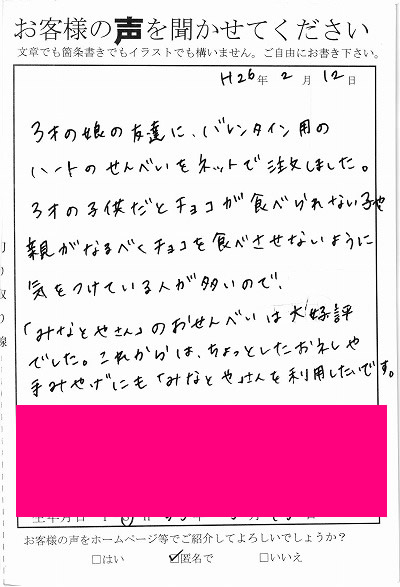 お客様の声を聞かせてください
文章でも箇条書きでもイラストでも構いません。ご自由にお書き下さい。
H26年 2月 12日
3才の娘の友達に、バレンタイン用の
ハートのせんべいをネットで注文しました。
3才の子供だとチョコが食べられない子や
親がなるべくチョコを食べさせないように
気をつけている人が多いので、
「みなとやさん」のおせんべいは大好評
でした。これからは、ちょっとしたお礼や
手みやげにも「みなとや」さんを利用したいです。
切り取り線
お客様の声をホームページ等でご紹介してよろしいでしょうか？
□はい ☑匿名で □いいえ